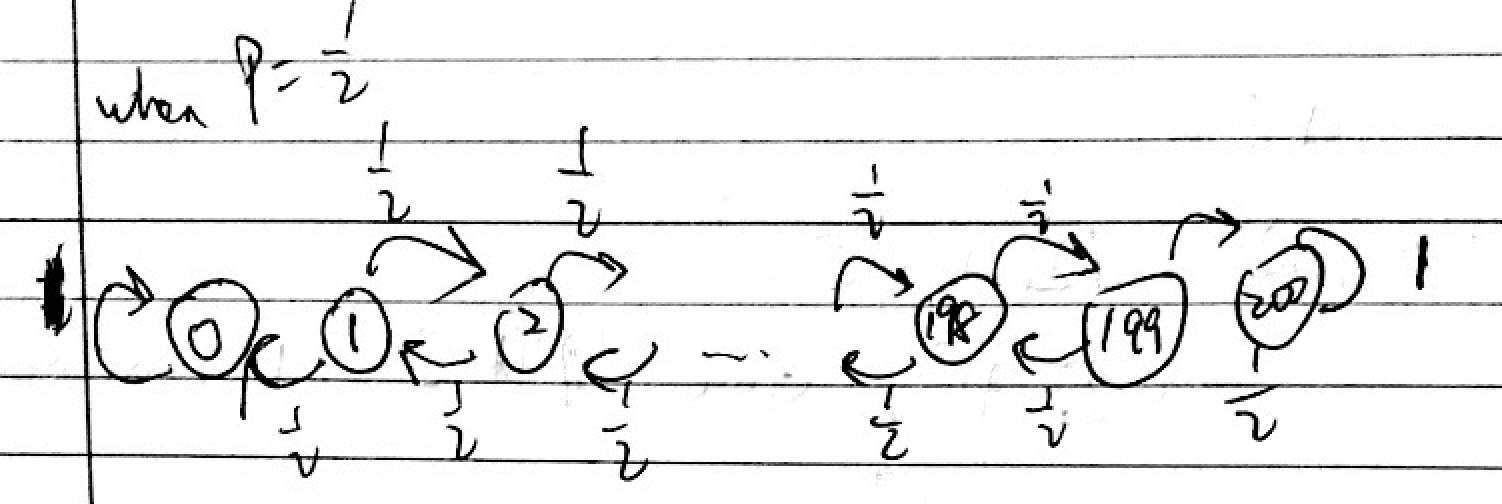 when P = 1/2
1/2 1/2 1/2 1/2
1 0 1 2 ... 198 199 200 1
1/2 1/2 1/2 1/2 1/2 1/2